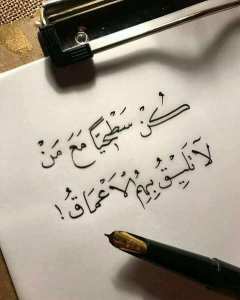 كُنْ سَطْحيًّا مَعَ مَنْ
لَا تَلِيْقُ بِهِمُ الْأَعْمَاقُ!